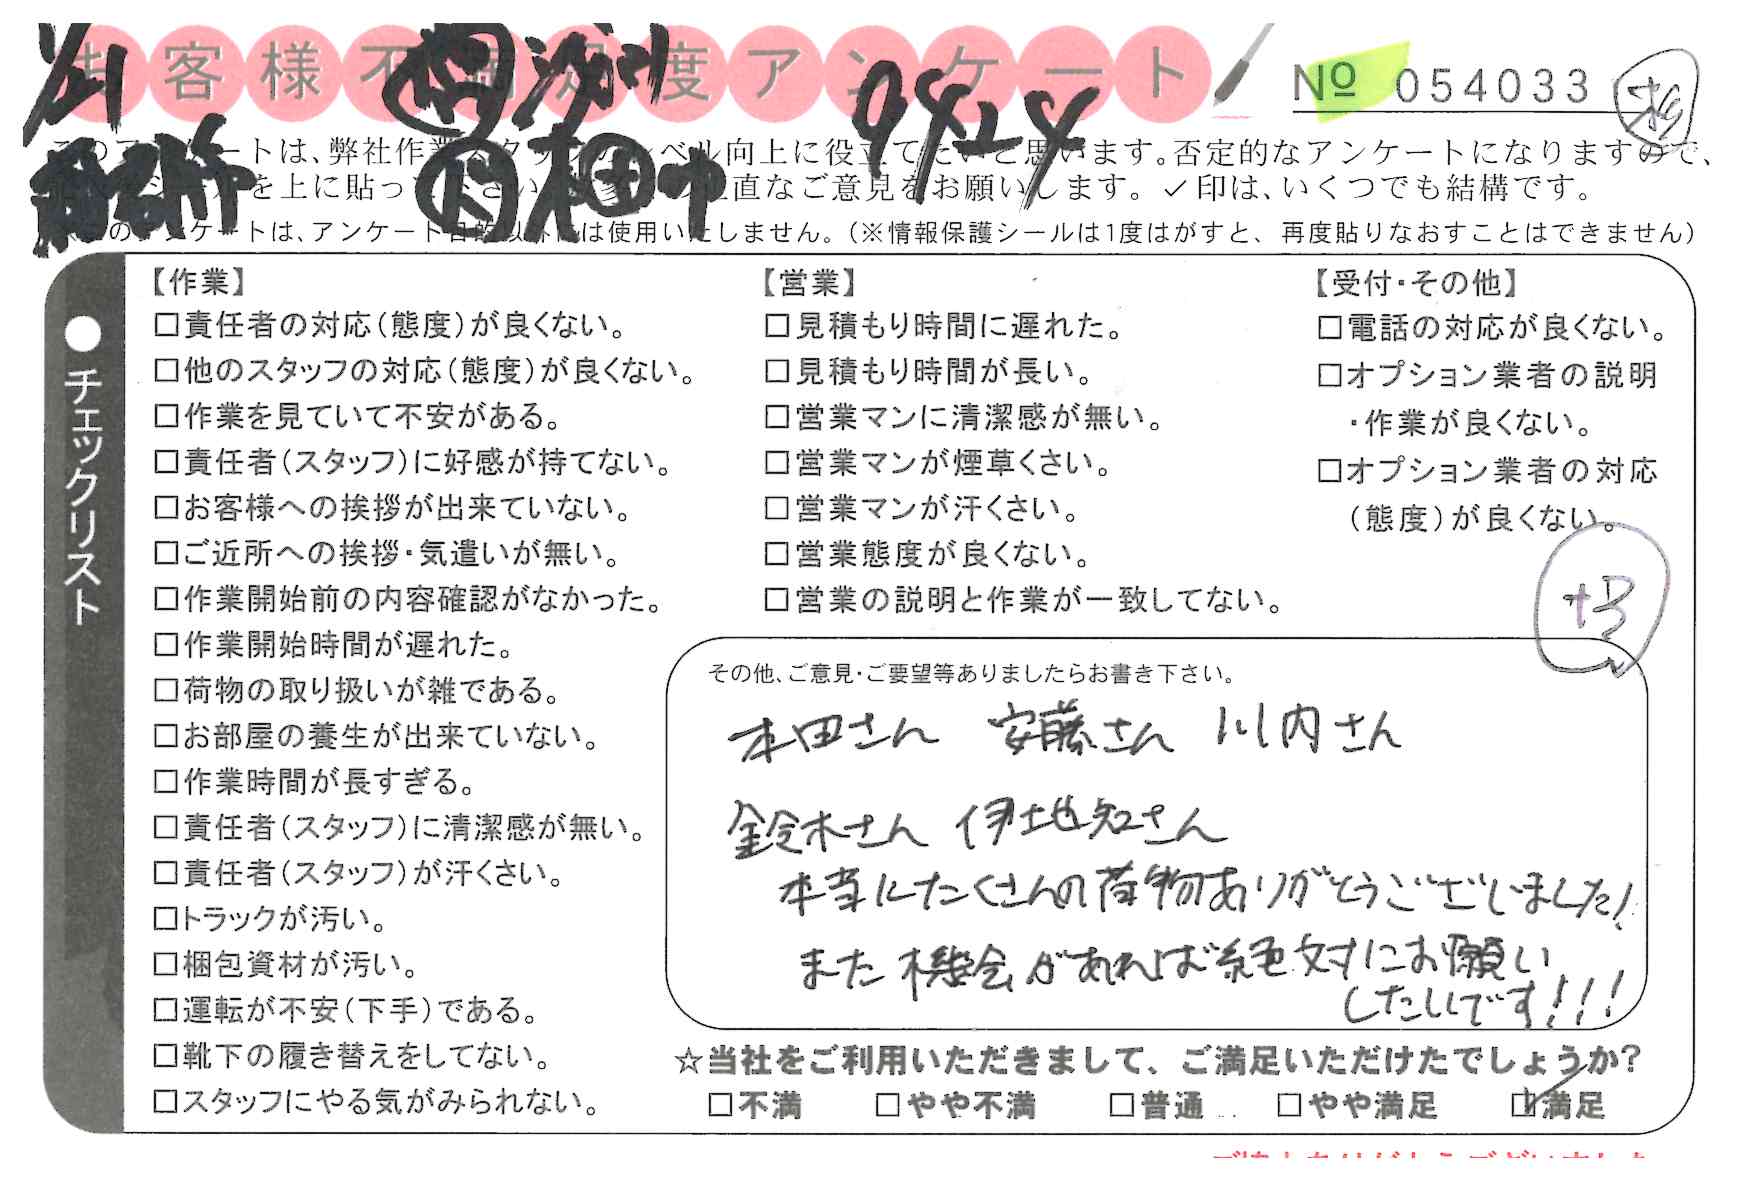 お客様不満足度アンケート
1/21
9424
No 054033
このアンケートは、弊社作業スタッフのレベル向上に役立てたいと思います。否定的なアンケートになりますので、
を上に貼って下さい 直なご意見をお願いします。✓印は、いくつでも結構です。
このアンケートは、アンケート目的以外には使用いたしません。(※情報保護シールは1度はがすと、再度貼りなおすことはできません)
●チェックリスト
【作業】
□責任者の対応(態度)が良くない。
□他のスタッフの対応(態度)が良くない。
□作業を見ていて不安がある。
□責任者(スタッフ)に好感が持てない。
□お客様への挨拶が出来ていない。
□ご近所への挨拶・気遣いが無い。
□作業開始前の内容確認がなかった。
□作業開始時間が遅れた。
□荷物の取り扱いが雑である。
□お部屋の養生が出来ていない。
□作業時間が長すぎる。
□責任者(スタッフ)に清潔感が無い。
□責任者(スタッフ)が汗くさい。
□トラックが汚い。
□梱包資材が汚い。
□運転が不安(下手)である。
□靴下の履き替えをしてない。
□スタッフにやる気がみられない。
【営業】
□見積もり時間に遅れた。
□見積もり時間が長い。
□営業マンに清潔感が無い。
□営業マンが煙草くさい。
□営業マンが汗くさい。
□営業態度が良くない。
□営業の説明と作業が一致してない。
【受付・その他】
□電話の対応が良くない。
□オプション業者の説明
・作業が良くない。
□オプション業者の対応
(態度)が良くない。
+3
その他、ご意見・ご要望等ありましたらお書き下さい。
本田さん 安藤さん 川内さん
鈴木さん 伊地知さん
本当にたくさんの荷物ありがとうございました!
また機会があれば絶対にお願い
したいです!!!
☆当社をご利用いただきまして、ご満足いただけたでしょうか?
□不満 □やや不満 □普通 □やや満足 ☑満足